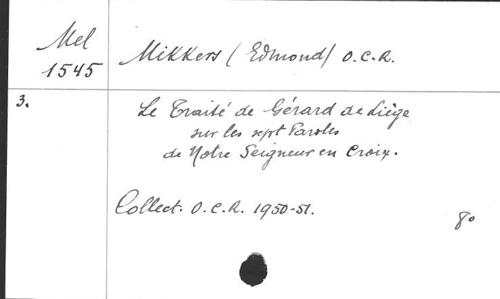 Mel
1545
Mikkers (Edmond) O.C.R.
3.
Le Traité de Gérard de Liège
sur les sept Paroles
de Notre Seigneur en Croix.
Collect. O.C.R. 1950-51.
8o